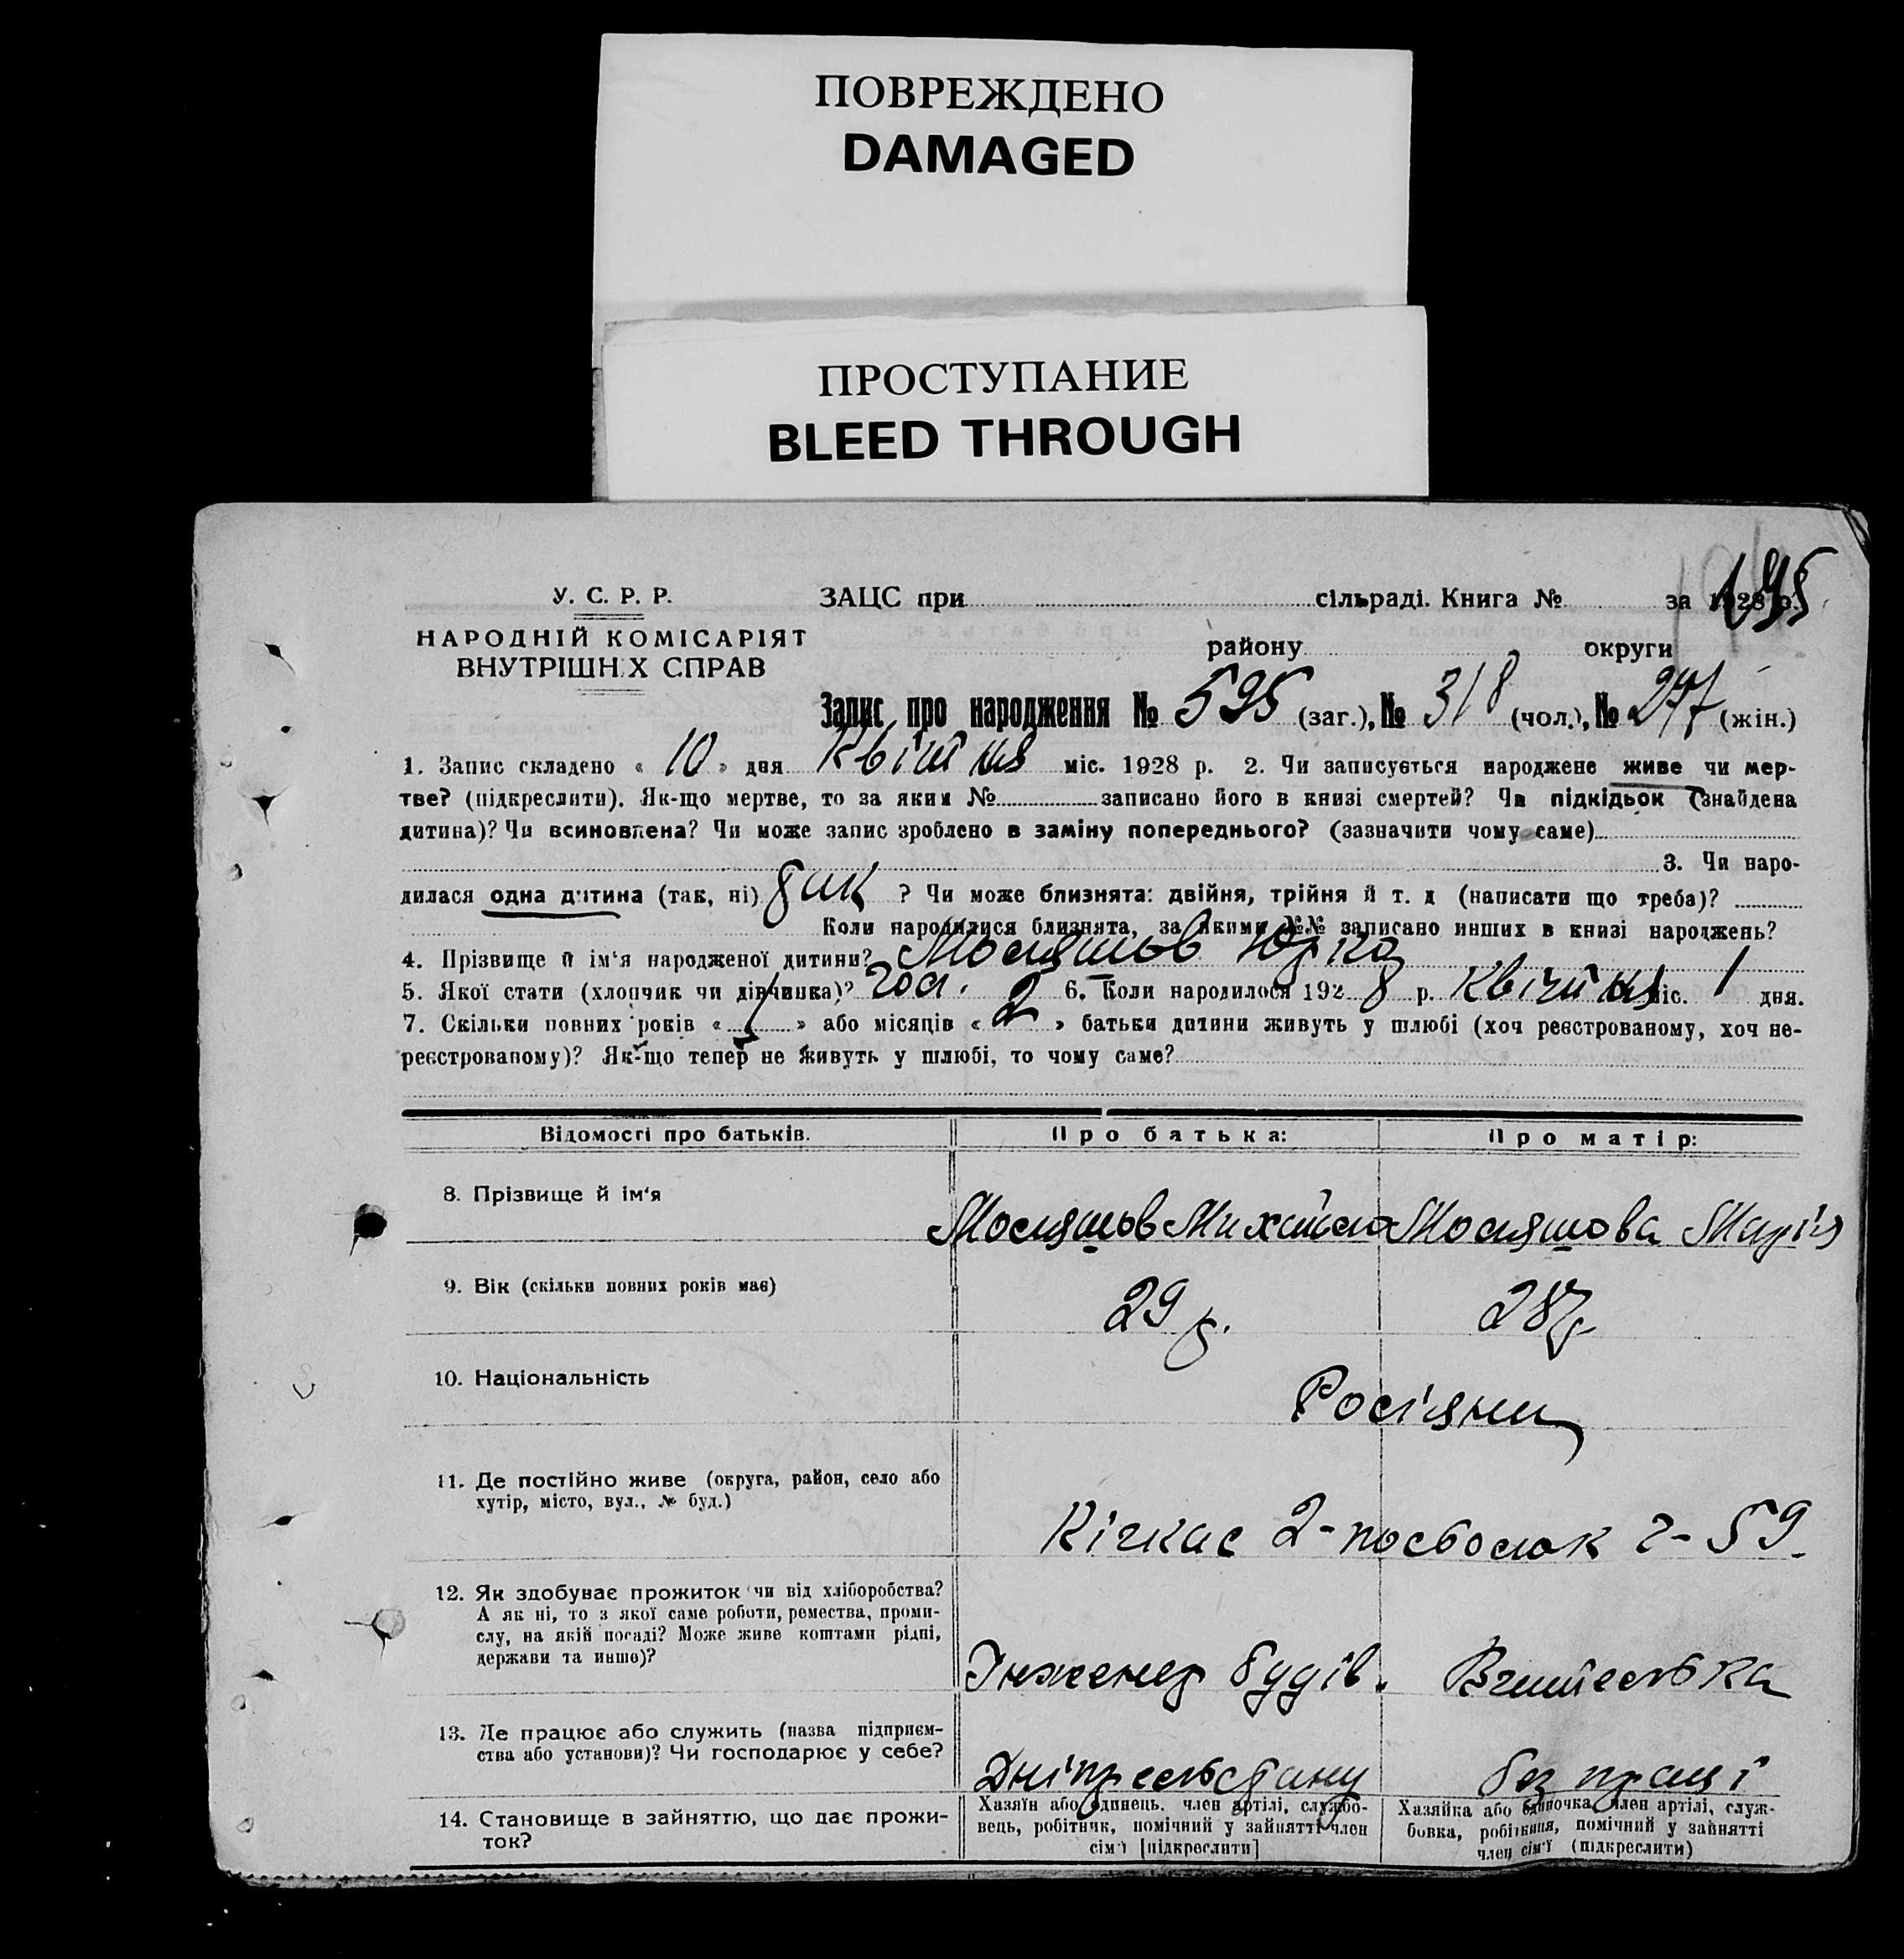 ПОВРЕЖДЕНО
DAMAGED
ПРОСТУПАНИЕ
BLEED THROUGH
195
У. С. Р. Р.
НАРОДНІЙ КОМІСАРІЯТ
ВНУТРІШН.Х СПРАВ
ЗАЦС при сільраді. Книга № за 1928 р.
району округи
Запис про народження № 595 (заг.), № 318 (чол.), № 277 (жін.)
1. Запис складено « 10 » дня Квітня міс. 1928 р. 2. Чи записується народжене живе чи мер-
тве? (підкреслити). Як-що мертве, то за яким № записано його в книзі смертей? Чи підкідьок (знайдена
дитина)? Чи всиновлена? Чи може запис зроблено в заміну попереднього? (зазначити чому саме)
3. Чи наро-
дилася одна дитина (так, ні) так ? Чи може близнята: двійня, трійня й т. д (написати що треба)?
Коли народилися близнята, за якими №№ записано инших в книзі народжень?
4. Прізвище й ім'я народженої дитини? Моляшов Юрко
5. Якої стати (хлопчик чи дівчинка)? чол. 6. Коли народилося 1928 р. Квітня міс. 1 дня.
7. Скільки повних років « 1 » або місяців « 2 » батьки дитини живуть у шлюбі (хоч реєстрованому, хоч не-
реєстрованому)? Як-що тепер не живуть у шлюбі, то чому саме?
Відомості про батьків. Про батька: Про матір:
8. Прізвище й ім'я Моляшов Михайло Моляшова Марія
9. Вік (скільки повних років має) 29 р. 28 р.
10. Національність Росіяни
11. Де постійно живе (округа, район, село або
хутір, місто, вул., № буд.)
Кічкас 2-посьолок г-59.
12. Як здобуває прожиток чи від хліборобства?
А як ні, то з якої саме роботи, ремества, проми-
слу, на якій посаді? Може живе коштами рідні,
держави та инше)?
Інженер будів. Вчителька
13. Де працює або служить (назва підприєм-
ства або установи)? Чи господарює у себе?
Дніпрельстану без праці
14. Становище в зайняттю, що дає прожи-
ток?
Хазяїн або одинець, член артілі, службо-
вець, робітник, помічний у зайнятті член
сім'ї [підкреслити]
Хазяйка або одиночка, член артілі, служ-
бовка, робітниця, помічний у зайнятті
член сім'ї (підкреслити)